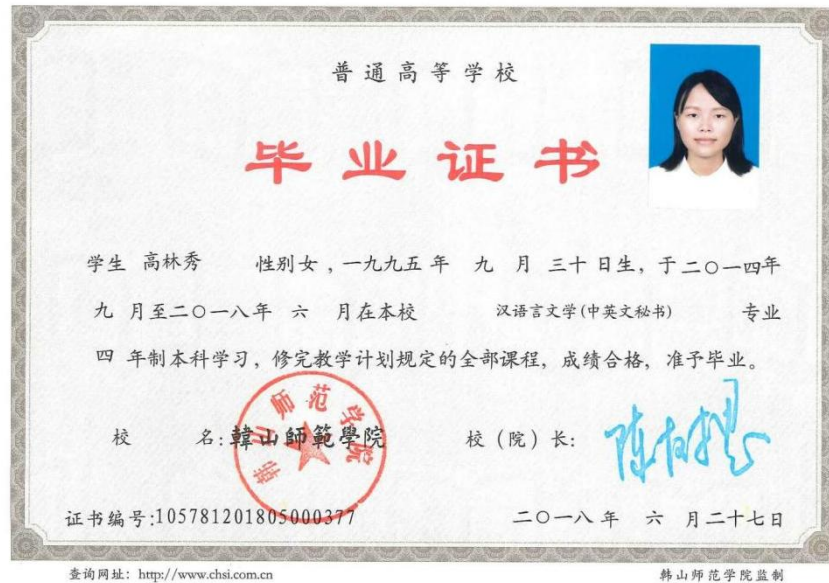 普通高等学校
毕业证书
学生 高林秀 性别女，一九九五 年 九 月 三十 日生，于二〇一四年
九 月至二〇一八年 六 月在本校 汉语言文学(中英文秘书) 专业
四 年制本科学习，修完教学计划规定的全部课程，成绩合格，准予毕业。
校 名:韓山師範學院 校（院）长:
韩山师范学院
证书编号:105781201805000377 二〇一八 年 六 月二十七日
查询网址：http://www.chsi.com.cn 韩山师范学院监制